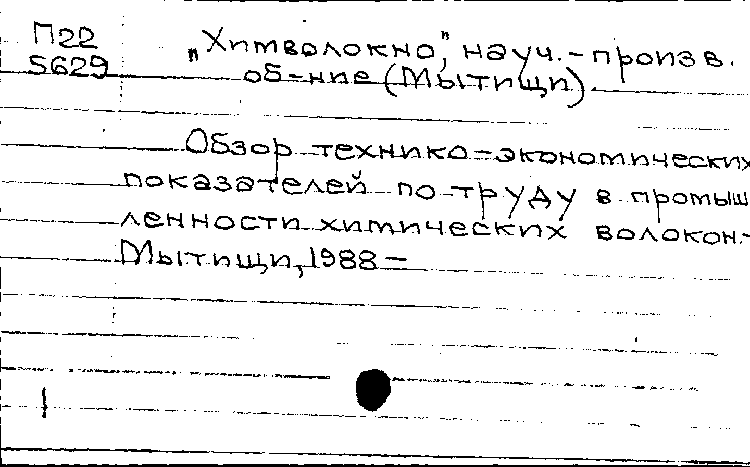 П22 „Химволокно", науч.-произв.
5629 об-ние (Мытищи).
Обзор технико-экономических
показателей по труду в промыш
ленности химических волокон.-
Мытищи, 1988 -